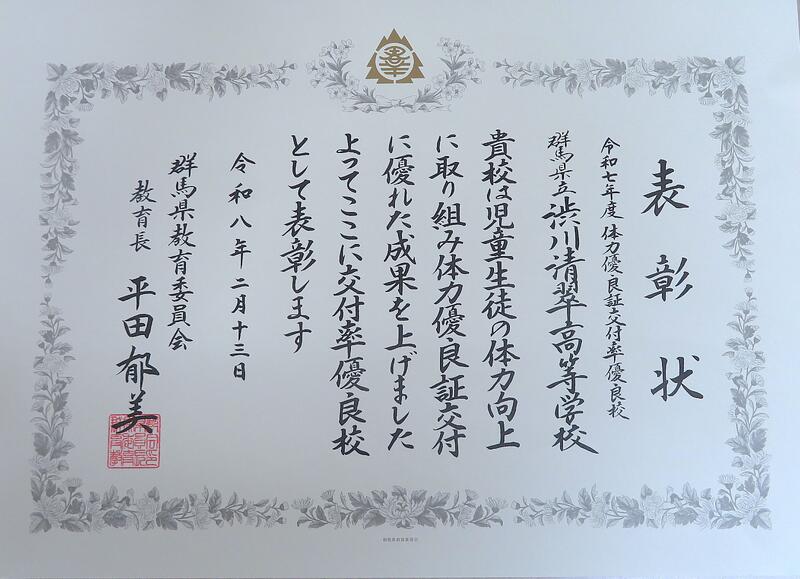 表彰状
令和七年度 体力優良証交付率優良校
群馬県立渋川清翠高等学校
貴校は児童生徒の体力向上
に取り組み体力優良証交付
に優れた成果を上げました
よってここに交付率優良校
として表彰します
令和八年二月十三日
群馬県教育委員会
教育長 平田郁美